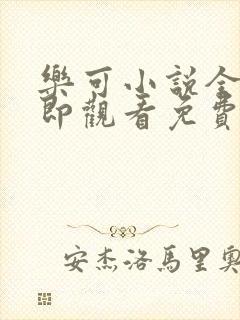 樂可小說全
即觀看免費
安杰洛馬里奧